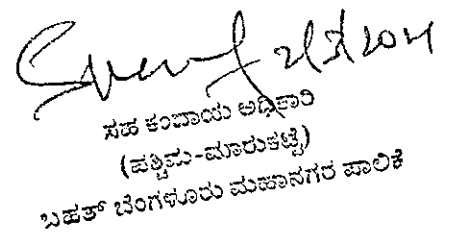 ಸಹ ಕಂದಾಯ ಅಧಿಕಾರಿ
(ಪಶ್ಚಿಮ-ಮಾರುಕಟ್ಟೆ)
ಬೃಹತ್ ಬೆಂಗಳೂರು ಮಹಾನಗರ ಪಾಲಿಕೆ